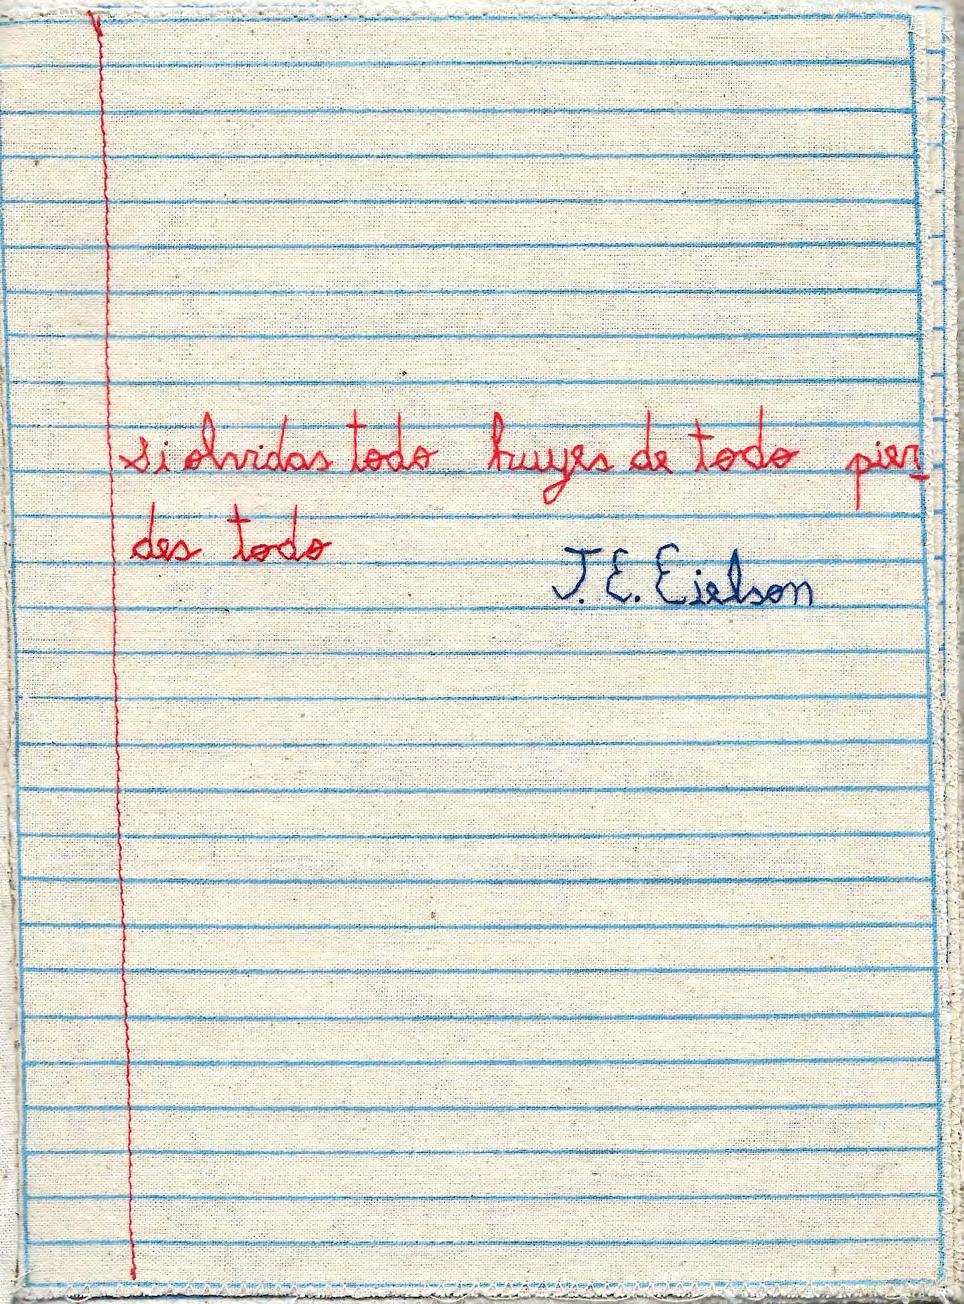 si olvidas todo huyes de todo pier
des todo
J. E. Eielson